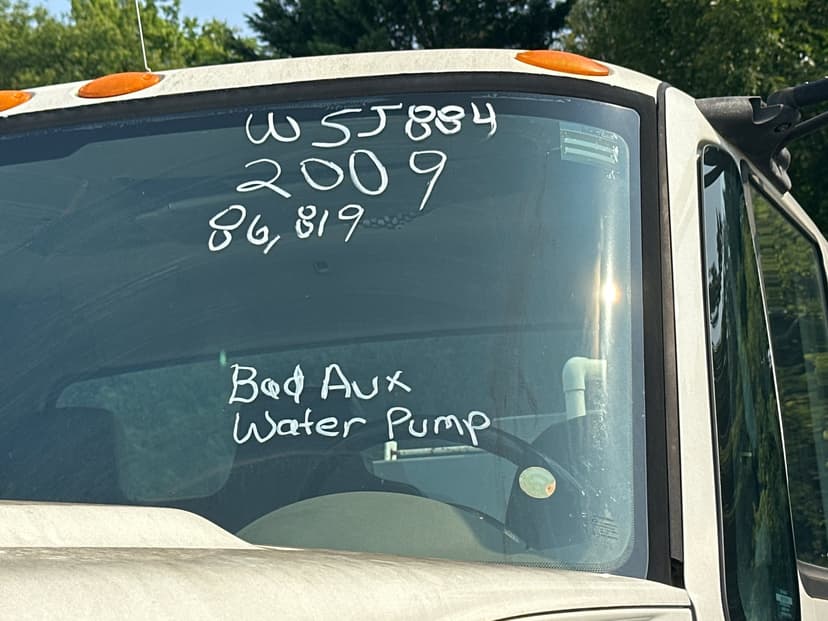 WSJ884
2009
86,819
Bad Aux
Water Pump